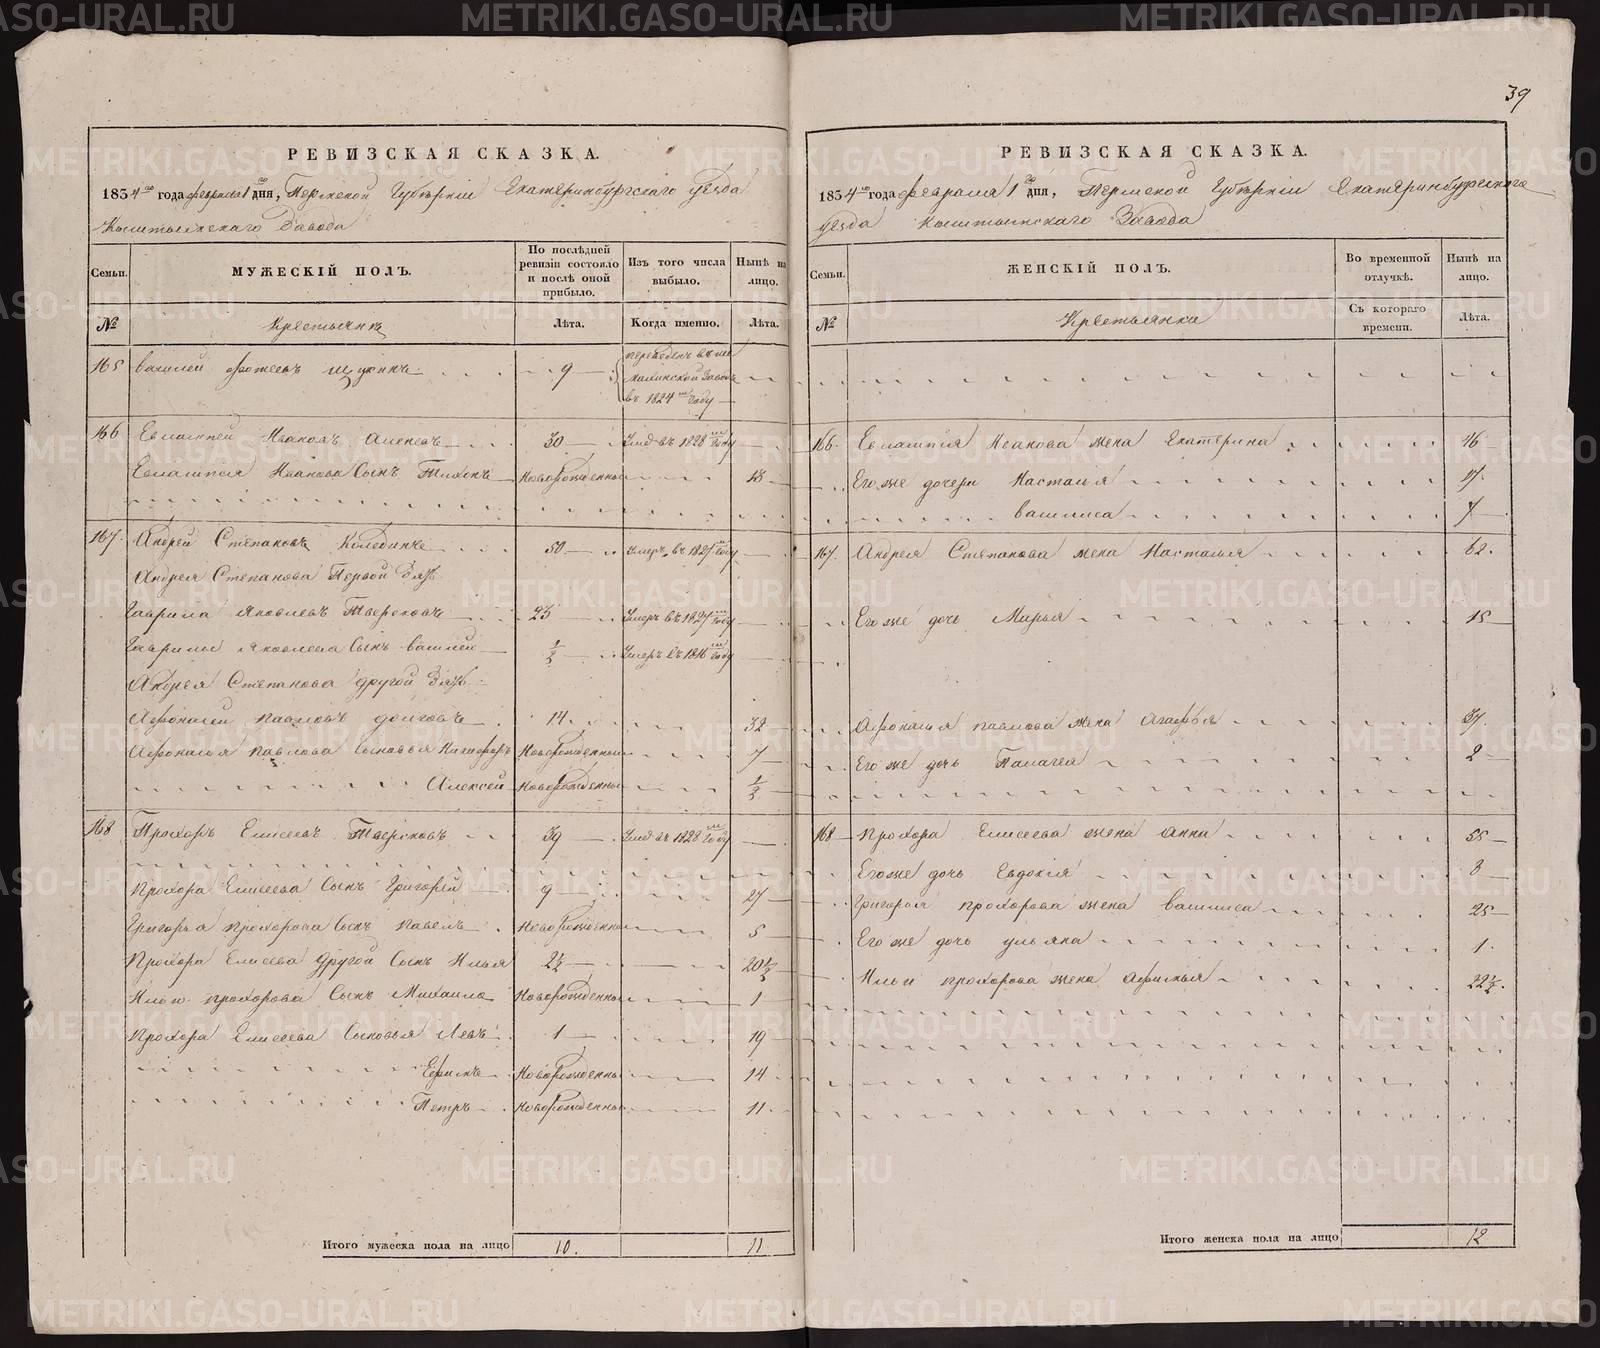 39
РЕВИЗСКАЯ СКАЗКА.
1834го года февраля 1го дня, Пермской Губѣрніи Екатеринбургскаго уезда
Кыштымскаго Завода
Семьи.
МУЖЕСКІЙ ПОЛЪ.
По послѣдней ревизіи состояло и послѣ оной прибыло.
Изъ того числа выбыло.
Нынѣ на лицо.
№
Крестьянъ
Лѣта.
Когда именно.
Лѣта.
165 василей фотеевъ щукинъ 9 переведенъ в
Завод
въ 1824м году
166 Евлампей Ивановъ 30 Умер въ 1828м году
Евлампея Иванова Сынъ Тихонъ Новорожденный 13
167 Андрей Степановъ 50 Умеръ въ 1827м году
Андрея Степанова Первой Зять
Гаврила Яковлевъ Тверсковъ 23 Умеръ въ 1827м году
Гаврилы Яковлева Сынъ василей ½ Умеръ в 1816м году
Андрея Степанова другой Зять
Афонасей павловъ долговъ 14 32
Афонасья павлова Сыновья Никифоръ Новорожденный 7
Алексей Новорожденный ½
168 Прохоръ Елисеевъ Тверсковъ 39 Умер въ 1828м году
Прохора Елисеева Сынъ Григорей 9 27
Григорья прохорова Сынъ павелъ Новорожденный 5
Прохора Елисеева другой Сынъ Илья 2½ 20½
Ильи прохорова Сынъ Михаило Новорожденный 1
Прохора Елисеева Сыновья Левъ 1 19
Ефимъ Новорожденный 14
Петръ Новорожденный 11
Итого мужеска пола на лицо 10. 11
РЕВИЗСКАЯ СКАЗКА.
1834го года февраля 1го дня, Пермской Губѣрніи Екатеринбургскаго
уезда Кыштымскаго Завода
Семьи.
ЖЕНСКІЙ ПОЛЪ.
Во временной отлучкѣ.
Нынѣ на лицо.
№
Крестьянки
Съ котораго времени.
Лѣта.
166. Евлампія Иванова жена Екатерина 46
Его же дочери Насталья 17
василиса 7
167. Андрея Степанова жена Насталья 62.
Его же дочь Марья 15
Афонасья павлова жена Агафья 37.
Его же дочь Палагея 2
168 прохора Елисеева жена Анна 55
Его же дочь Евдокія 8
Григорья прохорова жена василиса 25
Его же дочь ульяна 1.
Ильи прохорова жена Афимья 22½.
Итого женска пола на лицо 12
METRIKI.GASO-URAL.RU